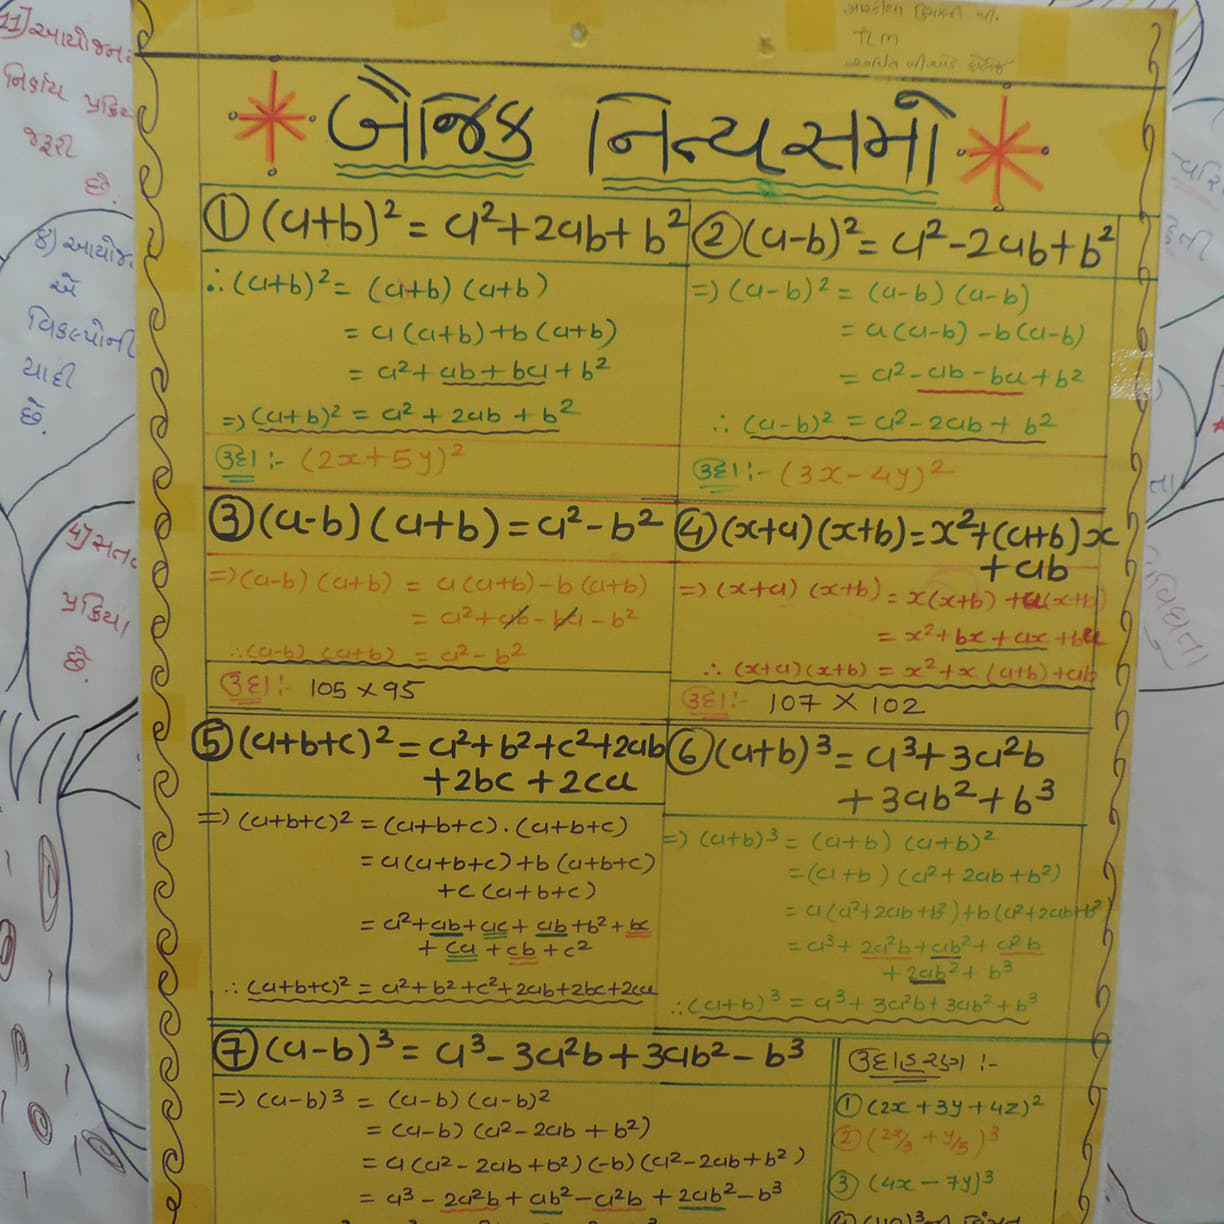 TLM
બૈજિક નિત્યસમો
① (a+b)² = a²+2ab+b²
∴ (a+b)² = (a+b) (a+b)
= a (a+b) + b (a+b)
= a² + ab + ba + b²
⇒ (a+b)² = a² + 2ab + b²
ઉદા :- (2x+5y)²
② (a-b)² = a²-2ab+b²
⇒ (a-b)² = (a-b) (a-b)
= a (a-b) - b (a-b)
= a² - ab - ba + b²
∴ (a-b)² = a² - 2ab + b²
ઉદા :- (3x-4y)²
③ (a-b) (a+b) = a²-b²
⇒ (a-b) (a+b) = a (a+b) - b (a+b)
= a² + ab - ba - b²
∴ (a-b) (a+b) = a² - b²
ઉદા :- 105 × 95
④ (x+a) (x+b) = x²+(a+b)x
+ab
⇒ (x+a) (x+b) = x(x+b) +a(x+b)
= x² + bx + ax + ba
∴ (x+a) (x+b) = x²+x (a+b)+ab
ઉદા :- 107 × 102
⑤ (a+b+c)² = a²+b²+c²+2ab
+2bc +2ca
⇒ (a+b+c)² = (a+b+c) . (a+b+c)
= a (a+b+c) + b (a+b+c)
+c (a+b+c)
= a²+ab+ac+ab+b²+bc
+ ca + cb + c²
∴ (a+b+c)² = a²+b²+c²+2ab+2bc+2ca
⑥ (a+b)³ = a³+3a²b
+3ab²+b³
⇒ (a+b)³ = (a+b) (a+b)²
= (a+b) (a²+2ab+b²)
= a (a²+2ab+b²)+b(a²+2ab+b²)
= a³+ 2a²b+ab²+ a²b
+ 2ab²+ b³
∴ (a+b)³ = a³+ 3a²b+3ab²+b³
⑦ (a-b)³ = a³-3a²b+3ab²-b³
⇒ (a-b)³ = (a-b) (a-b)²
= (a-b) (a²-2ab+b²)
= a (a²-2ab+b²) (-b) (a²-2ab+b²)
= a³ - 2a²b + ab² - a²b + 2ab² - b³
ઉદાહરણ :-
① (2x+3y+4z)²
② (2x/3 + y/5)³
③ (4x - 7y)³
11] આયોજન
નિર્ણય
જરૂરી
છે.
એ
વિકલ્પોની
યાદી
છે.
પ્રક્રિયા
છે.